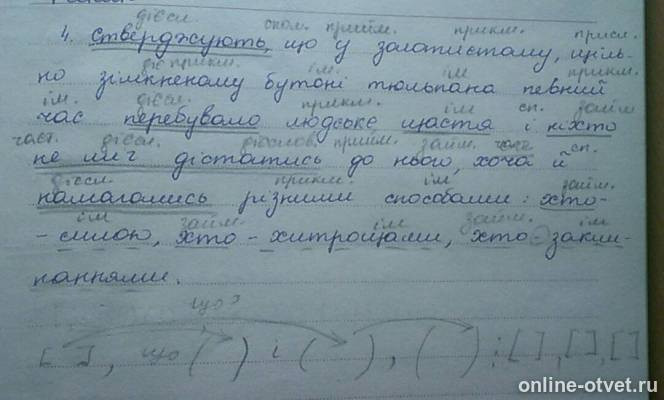 дієсл. спол. прийм. прикм. присл.
4. Стверджують, що у золотистому, щіль-
дієприкм. ім. ім прикм.
но зімкненому бутоні тюльпана певний
ім. дієсл. прикм. ім сп. займ
час перебувало людське щастя і ніхто
част. дієсл. дієслов прийм. займ. сп.
не міг дістатись до нього, хоча й
дієсл. прикм. ім займ.
намагались різними способами: хто-
ім займ. ім займ. ім
-силою, хто - хитрощами, хто - закли-
наннями.
що?
[ ], що ( ) і ( ), ( ) : [ ], [ ], [ ]
online-otvet.ru